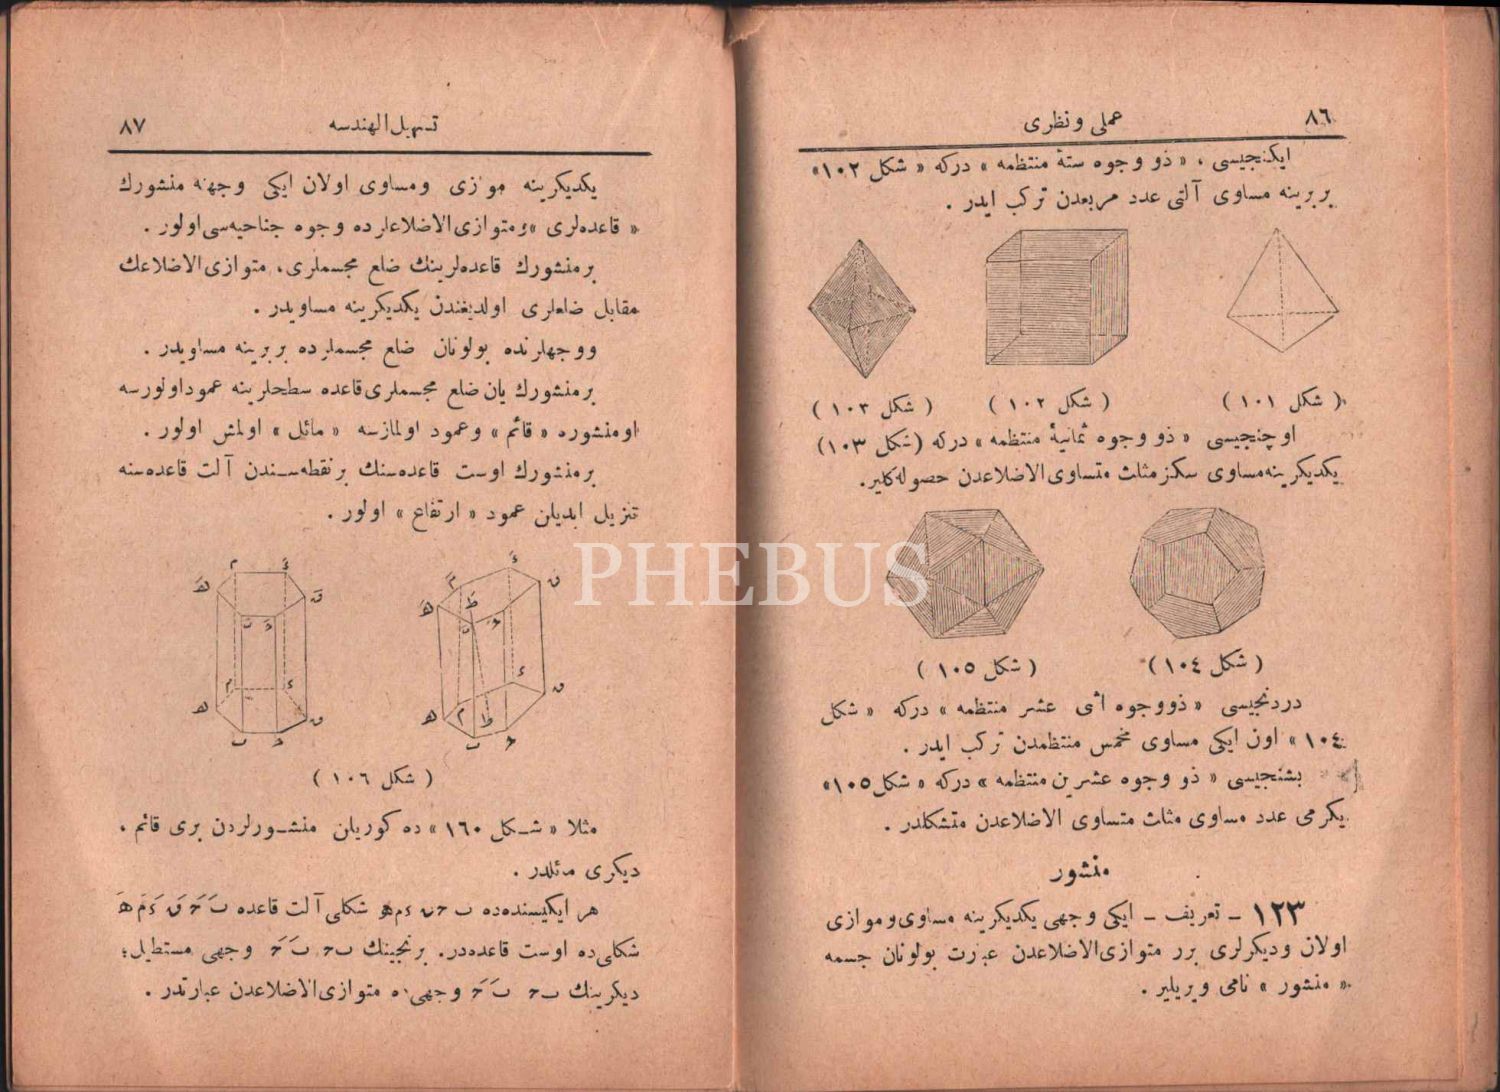 ٨٦
عملی و نظری
ایکنجیسی ، « ذو وجوه ستهٔ منتظمه » درکه « شکل ١٠٢ »
بربرینه مساوی آلتی عدد مربعدن ترکب ایدر .
( شکل ١٠١ ) ( شکل ١٠٢ ) ( شکل ١٠٣ )
اوچنجیسی « ذو وجوه ثمانیهٔ منتظمه » درکه (شکل ١٠٣)
یکدیکرینه مساوی سکز مثلث متساوی الاضلاعدن حصوله کلیر.
( شکل ١٠٤ ) ( شکل ١٠٥ )
دردنجیسی « ذو وجوه اثنی عشر منتظمه » درکه « شکل
١٠٤ » اون ایکی مساوی مخمس منتظمدن ترکب ایدر .
بشنجیسی « ذو وجوه عشرین منتظمه » درکه « شکل ١٠٥ »
یکرمی عدد مساوی مثلث متساوی الاضلاعدن متشکلدر .
منشور
١٢٣ ـ تعریف ـ ایکی وجهی یکدیکرینه مساوی و موازی
اولان ودیکرلری برر متوازی الاضلاعدن عبارت بولونان جسمه
« منشور » نامی ویریلیر .
تسهیل الهندسه
٨٧
یکدیکرینه موازی ومساوی اولان ایکی وجهنه منشورك
« قاعده لری » و متوازی الاضلاعلرده وجوه جناحیه سی اولور .
برمنشورك قاعده لرینك ضلع مجسملری، متوازی الاضلاعك
مقابل ضلعلری اولدیغندن یکدیکرینه مساویدر .
ووجهلرنده بولونان ضلع مجسملرده بربرینه مساویدر .
برمنشورك یان ضلع مجسملری قاعده سطحلرینه عمود اولورسه
اومنشوره « قائم » وعمود اولمازسه « مائل » اولمش اولور .
برمنشورك اوست قاعده سنك برنقطه سندن آلت قاعده سنه
تنزیل ایدیلن عمود « ارتفاع » اولور .
( شکل ١٠٦ )
مثلا « شکل ١٦٠ » ده کوریلن منشورلردن بری قائم ،
دیکری مائلدر .
هر ایکیسنده ده شکلی آلت قاعده
شکلی ده اوست قاعده در. برنجینك وجهی مستطیل ؛
دیکرینك وجهی ده متوازی الاضلاعدن عبارتدر .
PHEBUS